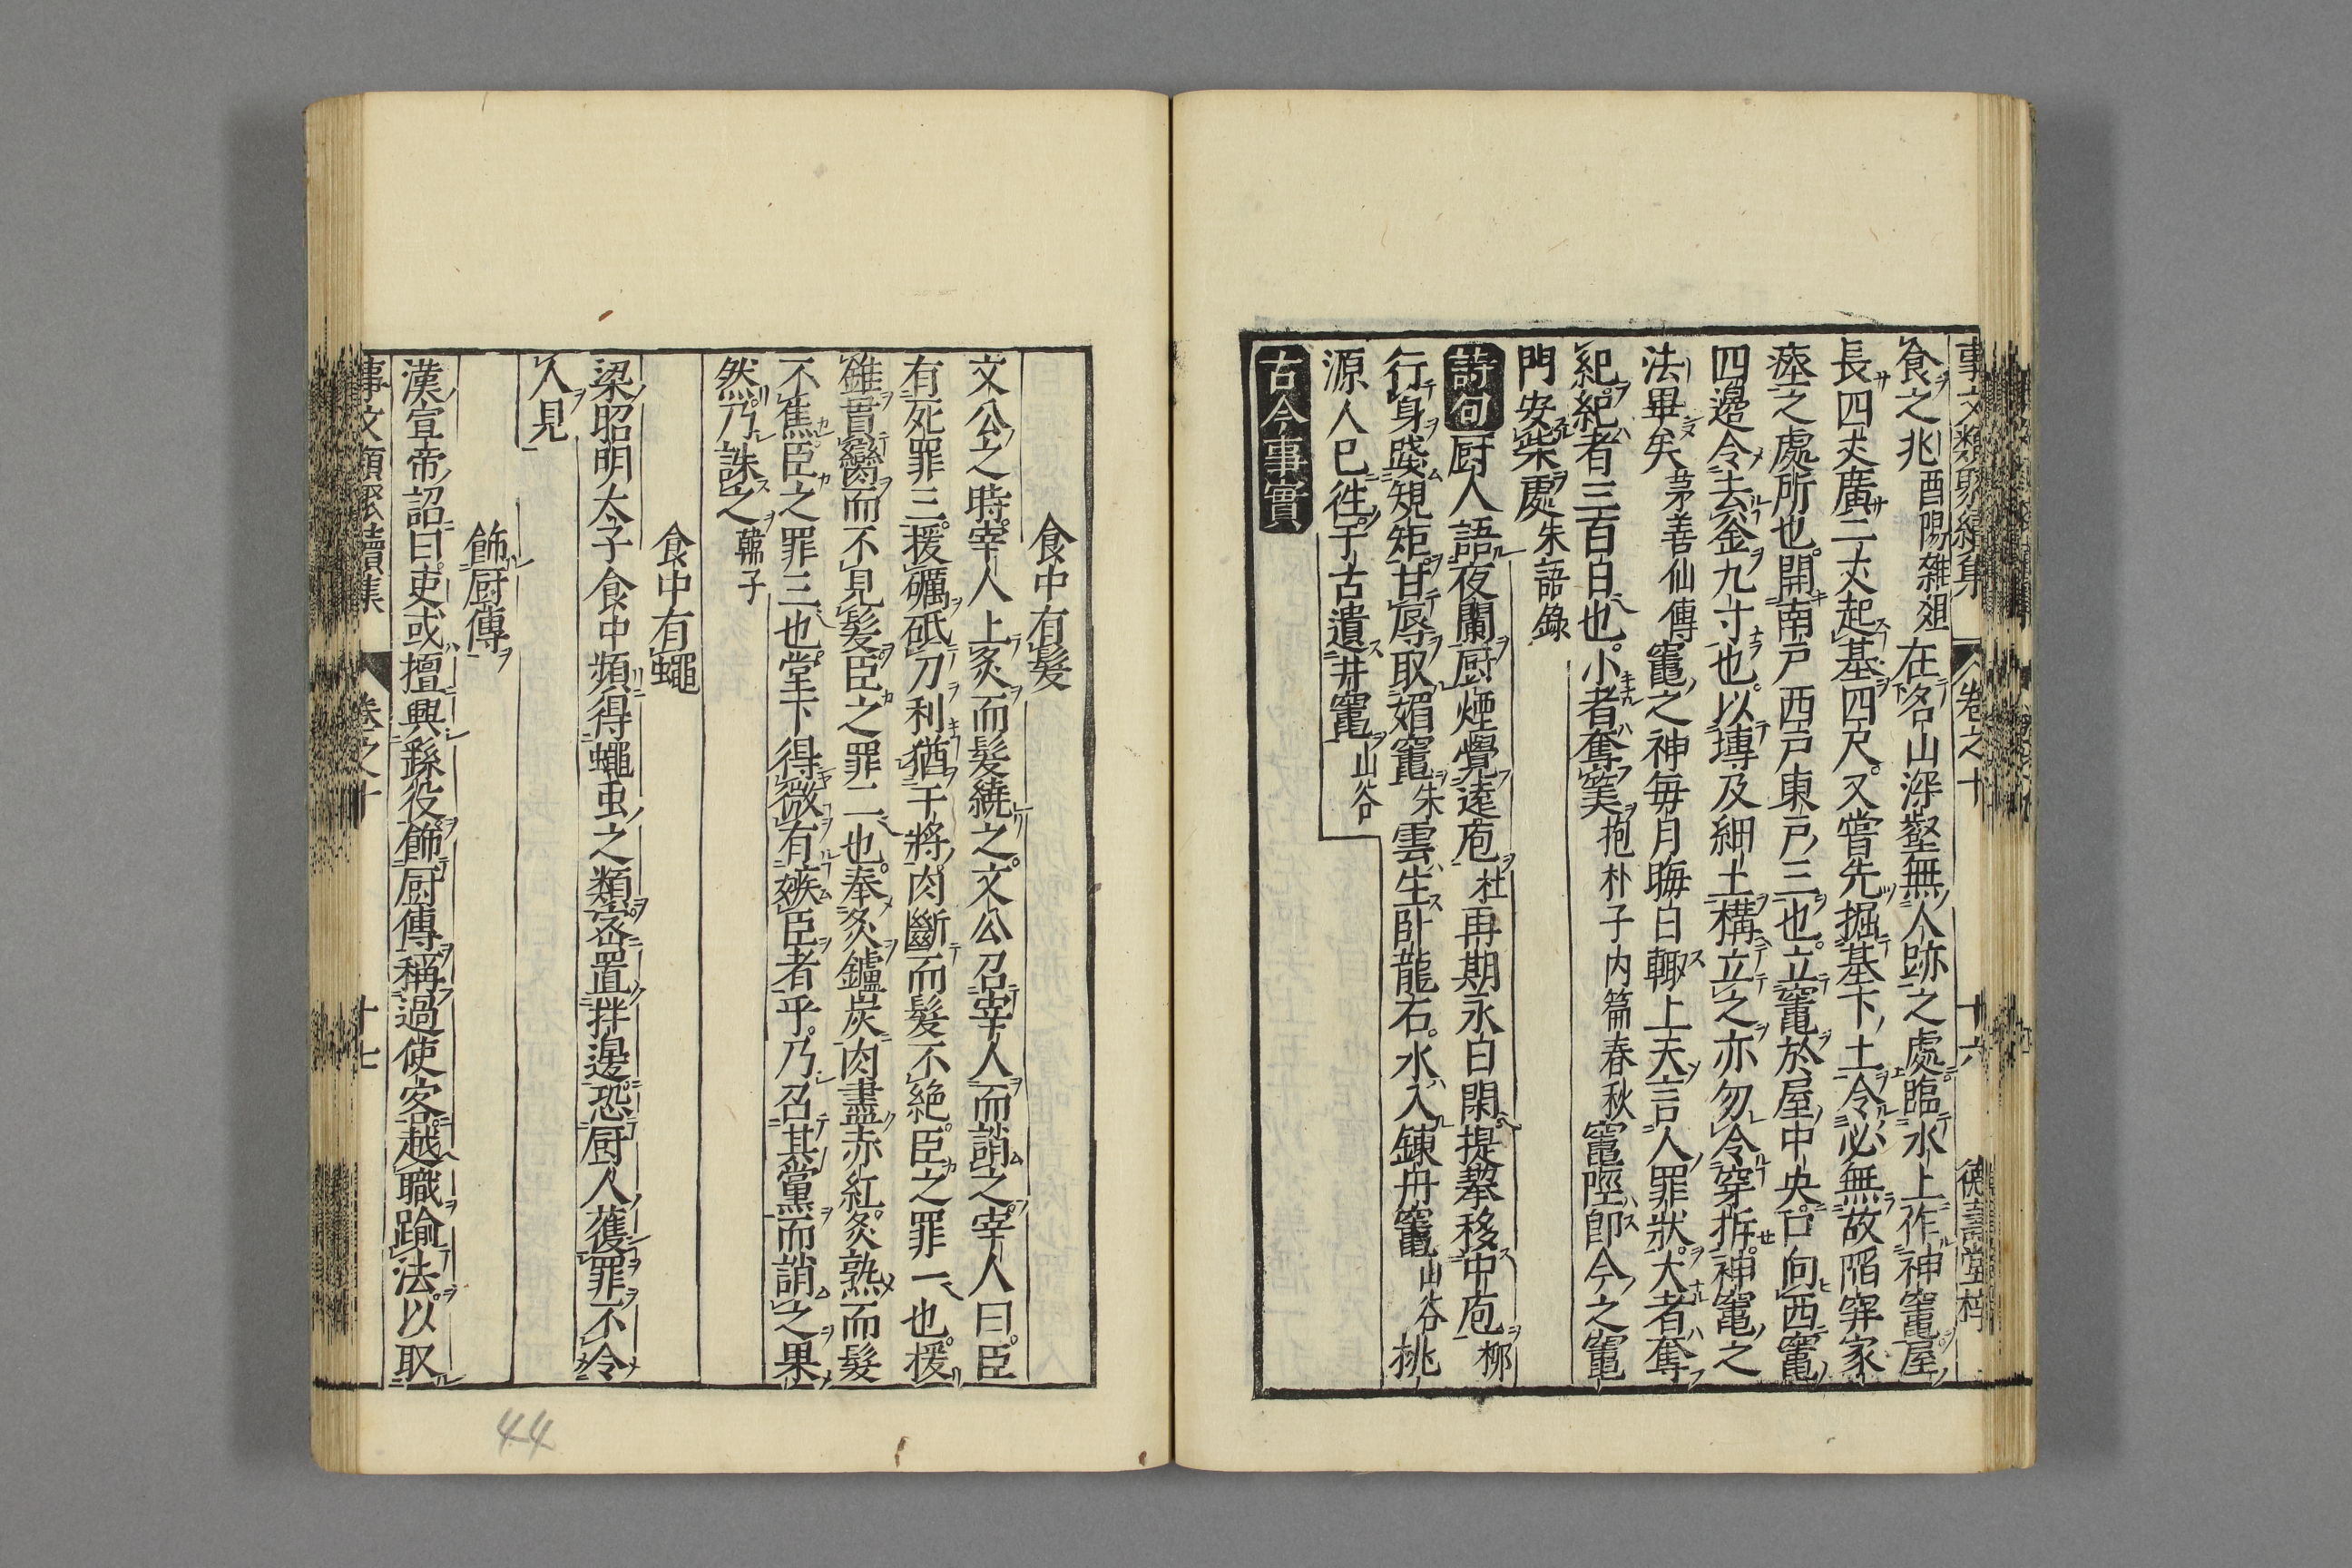 事文類聚續集 卷之十 十六 德壽堂梓
食之兆酉陽雜俎在名山深壑無人跡之處臨水上作神竈屋
長四丈廣二丈起基四尺又嘗先掘基下土令必無故陷穽家
瘞之處所也開南戸西戸東戸三也立竈於屋中央口向西竈
四邊令去釜九寸也以塼及細土構立之亦勿令穿拆神竈之
法畢矣茅善仙傳竈之神每月晦日輙上天言人罪狀大者奪
紀紀者三百日也小者奪筭抱朴子内篇春秋竈陘卽今之竈
門安柴處朱語錄
詩句厨人語夜闌厨煙覺遠庖杜再期永日閑提挈移中庖柳
行身踐規矩甘辱取媚竈朱雲生卧龍石水入錬丹竈山谷桃
源人已徃千古遺井竈山谷
古今事實
食中有髮
文公之時宰人上炙而髮繞之文公召宰人而誚之宰人曰臣
有死罪三援礪砥刀利猶干將肉斷而髮不絶臣之罪一也援
錐貫臠而不見髮臣之罪二也奉炙鑪炭肉盡赤紅炙熟而髮
不焦臣之罪三也堂下得微有嫉臣者乎乃召其黨而誚之果
然乃誅之韓子
食中有蠅
梁昭明太子食中頻得蠅虫之類密置拌邊恐厨人獲罪不令
人見
飾厨傳
漢宣帝詔曰吏或擅興繇役飾厨傳稱過使客越職踰法以取
事文類聚續集 卷之十 十七
44